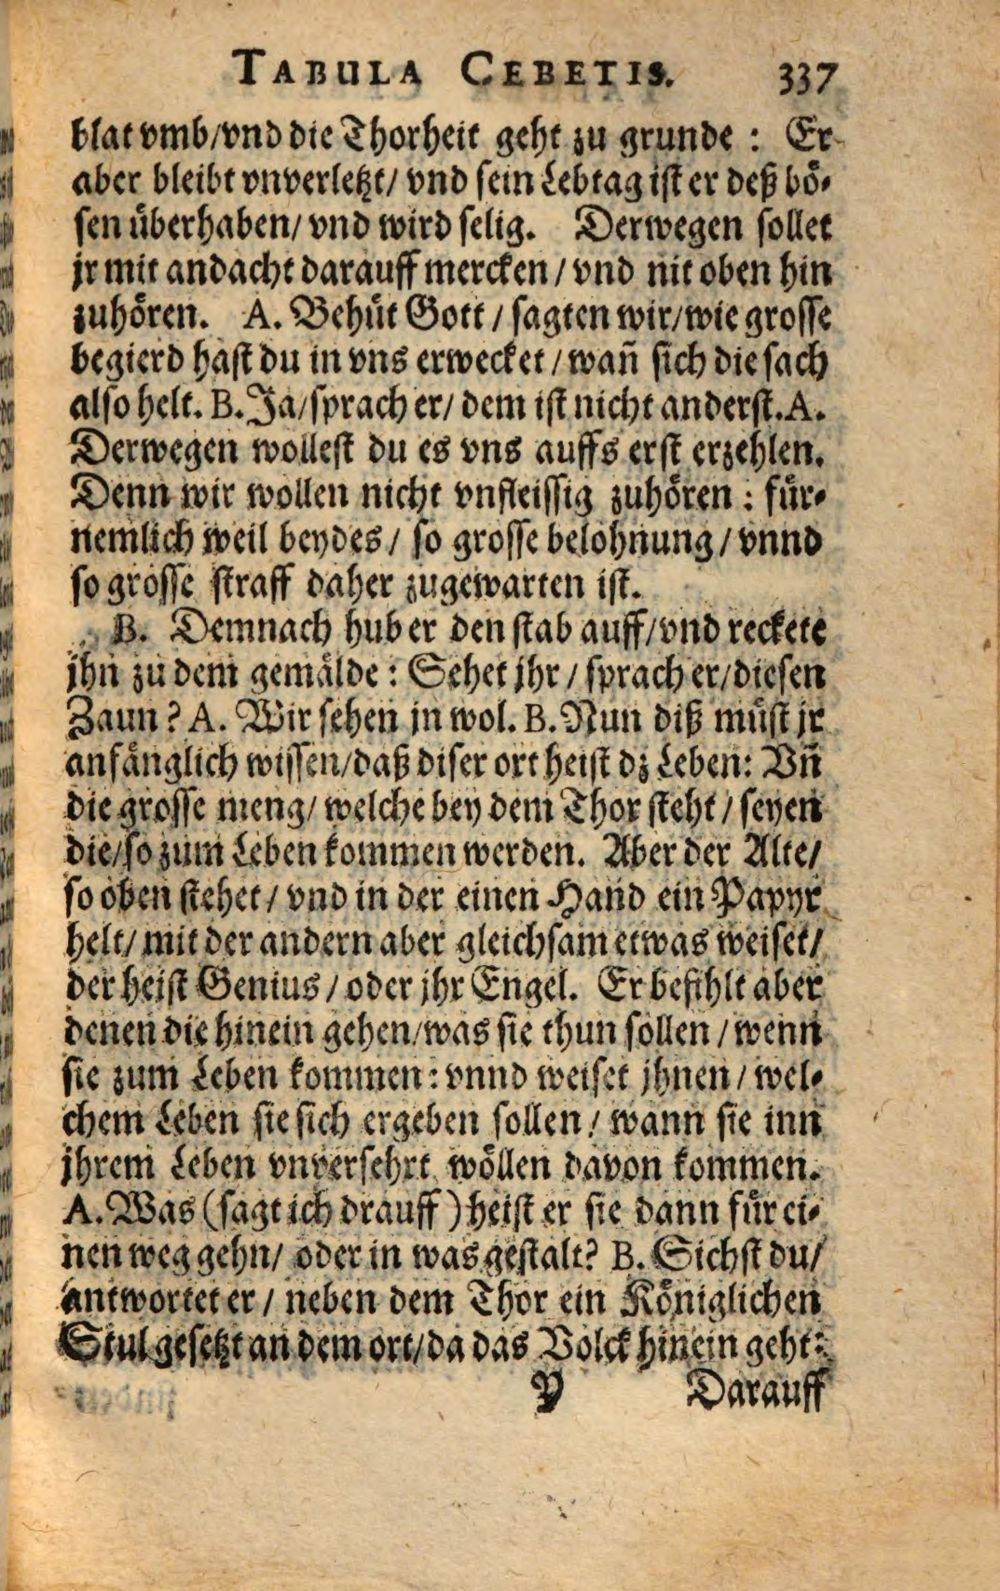 TABULA CEBETIS. 337
blat vmb/vnd die Thorheit geht zu grunde : Er
aber bleibt vnverletzt/ vnd sein Lebtag ist er deß bö-
sen überhaben/ vnd wird selig. Derwegen sollet
jr mit andacht darauff mercken / vnd nit oben hin
zuhören. A. Behüt Gott / sagten wir/wie grosse
begierd hast du in vns erwecket / wañ sich die sach
also helt. B. Ja/sprach er/ dem ist nicht anderst. A.
Derwegen wollest du es vns auffs erst erzehlen.
Denn wir wollen nicht vnfleissig zuhören : für-
nemlich weil beydes / so grosse belohnung / vnnd
so grosse straff daher zugewarten ist.
B. Demnach hub er den stab auff/vnd reckete
jhn zu dem gemälde : Sehet jhr / sprach er/diesen
Zaun ? A. Wir sehen jn wol. B. Nun diß müst jr
anfänglich wissen/daß diser ort heist dz Leben: Vñ
die grosse meng/ welche bey dem Thor steht / seyen
die/so zum Leben kommen werden. Aber der Alte/
so oben stehet / vnd in der einen Hand ein Papyr
helt/ mit der andern aber gleichsam etwas weiset/
der heist Genius / oder jhr Engel. Er befihlt aber
denen die hinein gehen/was sie thun sollen / wenn
sie zum Leben kommen : vnnd weiset jhnen / wel-
chem Leben sie sich ergeben sollen / wann sie inn
jhrem Leben vnversehrt wöllen davon kommen.
A. Was (sagt ich drauff) heist er sie dann für ei-
nen weg gehn/ oder in was gestalt? B. Sichst du/
antwortet er / neben dem Thor ein Königlichen
Stul gesetzt an dem ort/da das Volck hinein geht:
Y Darauff